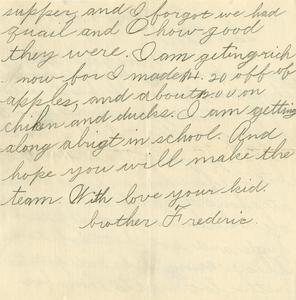 supper, and I forgot we had
quail and O how good
they were. I am geting rich
now for I made 14.20 off of
apples, and about .00 on
chiken and ducks. I am getting
along alrigt in school. And
hope you will make the
team. With love your kid
brother Frederic.